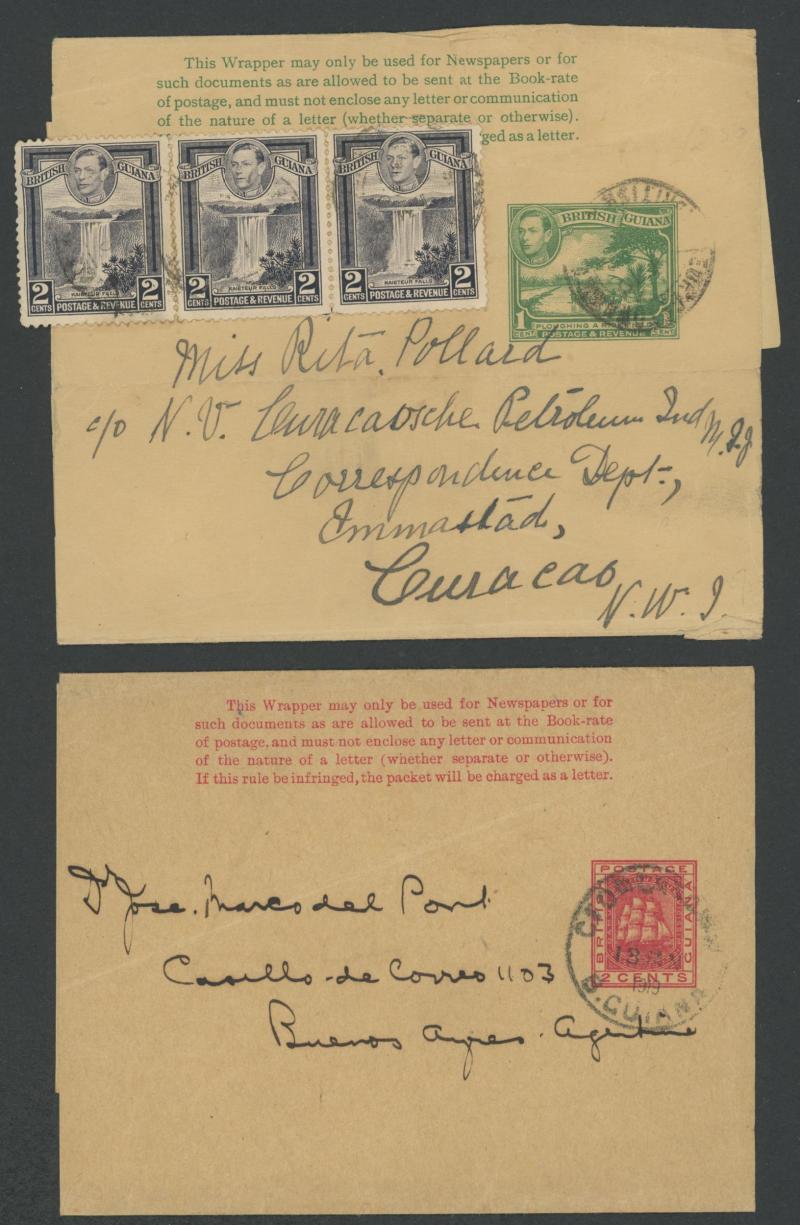 This Wrapper may only be used for Newspapers or for
such documents as are allowed to be sent at the Book-rate
of postage, and must not enclose any letter or communication
of the nature of a letter (whether separate or otherwise).
ged as a letter.
BRITISH GUIANA
KAIETEUR FALLS
2 CENTS POSTAGE & REVENUE 2 CENTS
BRITISH GUIANA
KAIETEUR FALLS
2 CENTS POSTAGE & REVENUE 2 CENTS
BRITISH GUIANA
KAIETEUR FALLS
2 CENTS POSTAGE & REVENUE 2 CENTS
BRITISH GUIANA
PLOUGHING A
1 CENT POSTAGE & REVENUE CENT
Miss Rita. Pollard
c/o N.V. Curacaosche Petroleum Ind
Correspondence Dept.,
Emmastad,
Curacao
N.W.I.
This Wrapper may only be used for Newspapers or for
such documents as are allowed to be sent at the Book-rate
of postage, and must not enclose any letter or communication
of the nature of a letter (whether separate or otherwise).
If this rule be infringed, the packet will be charged as a letter.
POSTAGE
BRITISH GUIANA
2 CENTS
1919
B. GUIANA
Dr Jose. Marco del Pont
Casillo-de Correo 1103
Buenos Ayres. Agentine